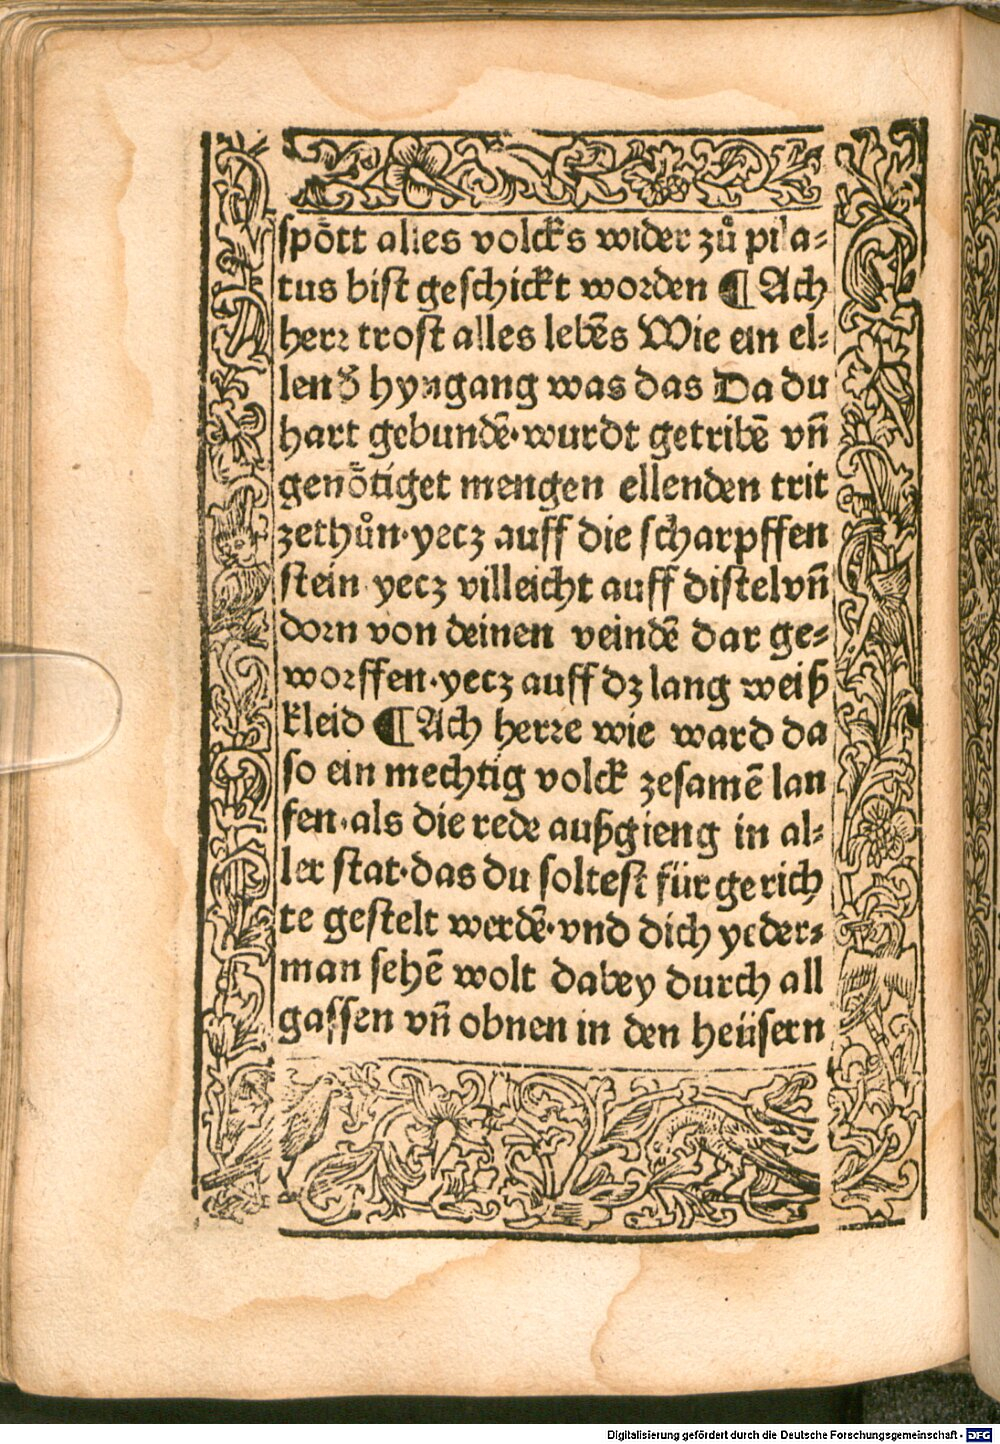 spött alles volcks wider zů pila⸗
tus bist geschickt worden ¶ Ach
herr trost alles lebẽs Wie ein el⸗
lend̄ hyngang was das Da du
hart gebundẽ·wurdt getribẽ vñ
genötiget mengen ellenden trit
zethůn·yecz auff die scharpffen
stein yecz villeicht auff distel vñ
dorn von deinen veindẽ dar ge⸗
worffen·yecz auff dz lang weiß
kleid ¶ Ach herre wie ward da
so ein mechtig volck zesamẽ lau
fen·als die rede außgieng in al⸗
ler stat·das du soltest für gerich
te gestelt werdẽ·vnd dich yeder⸗
man sehẽ wolt dabey durch all
gassen vñ obnen in den heüsern
Digitalisierung gefördert durch die Deutsche Forschungsgemeinschaft - DFG